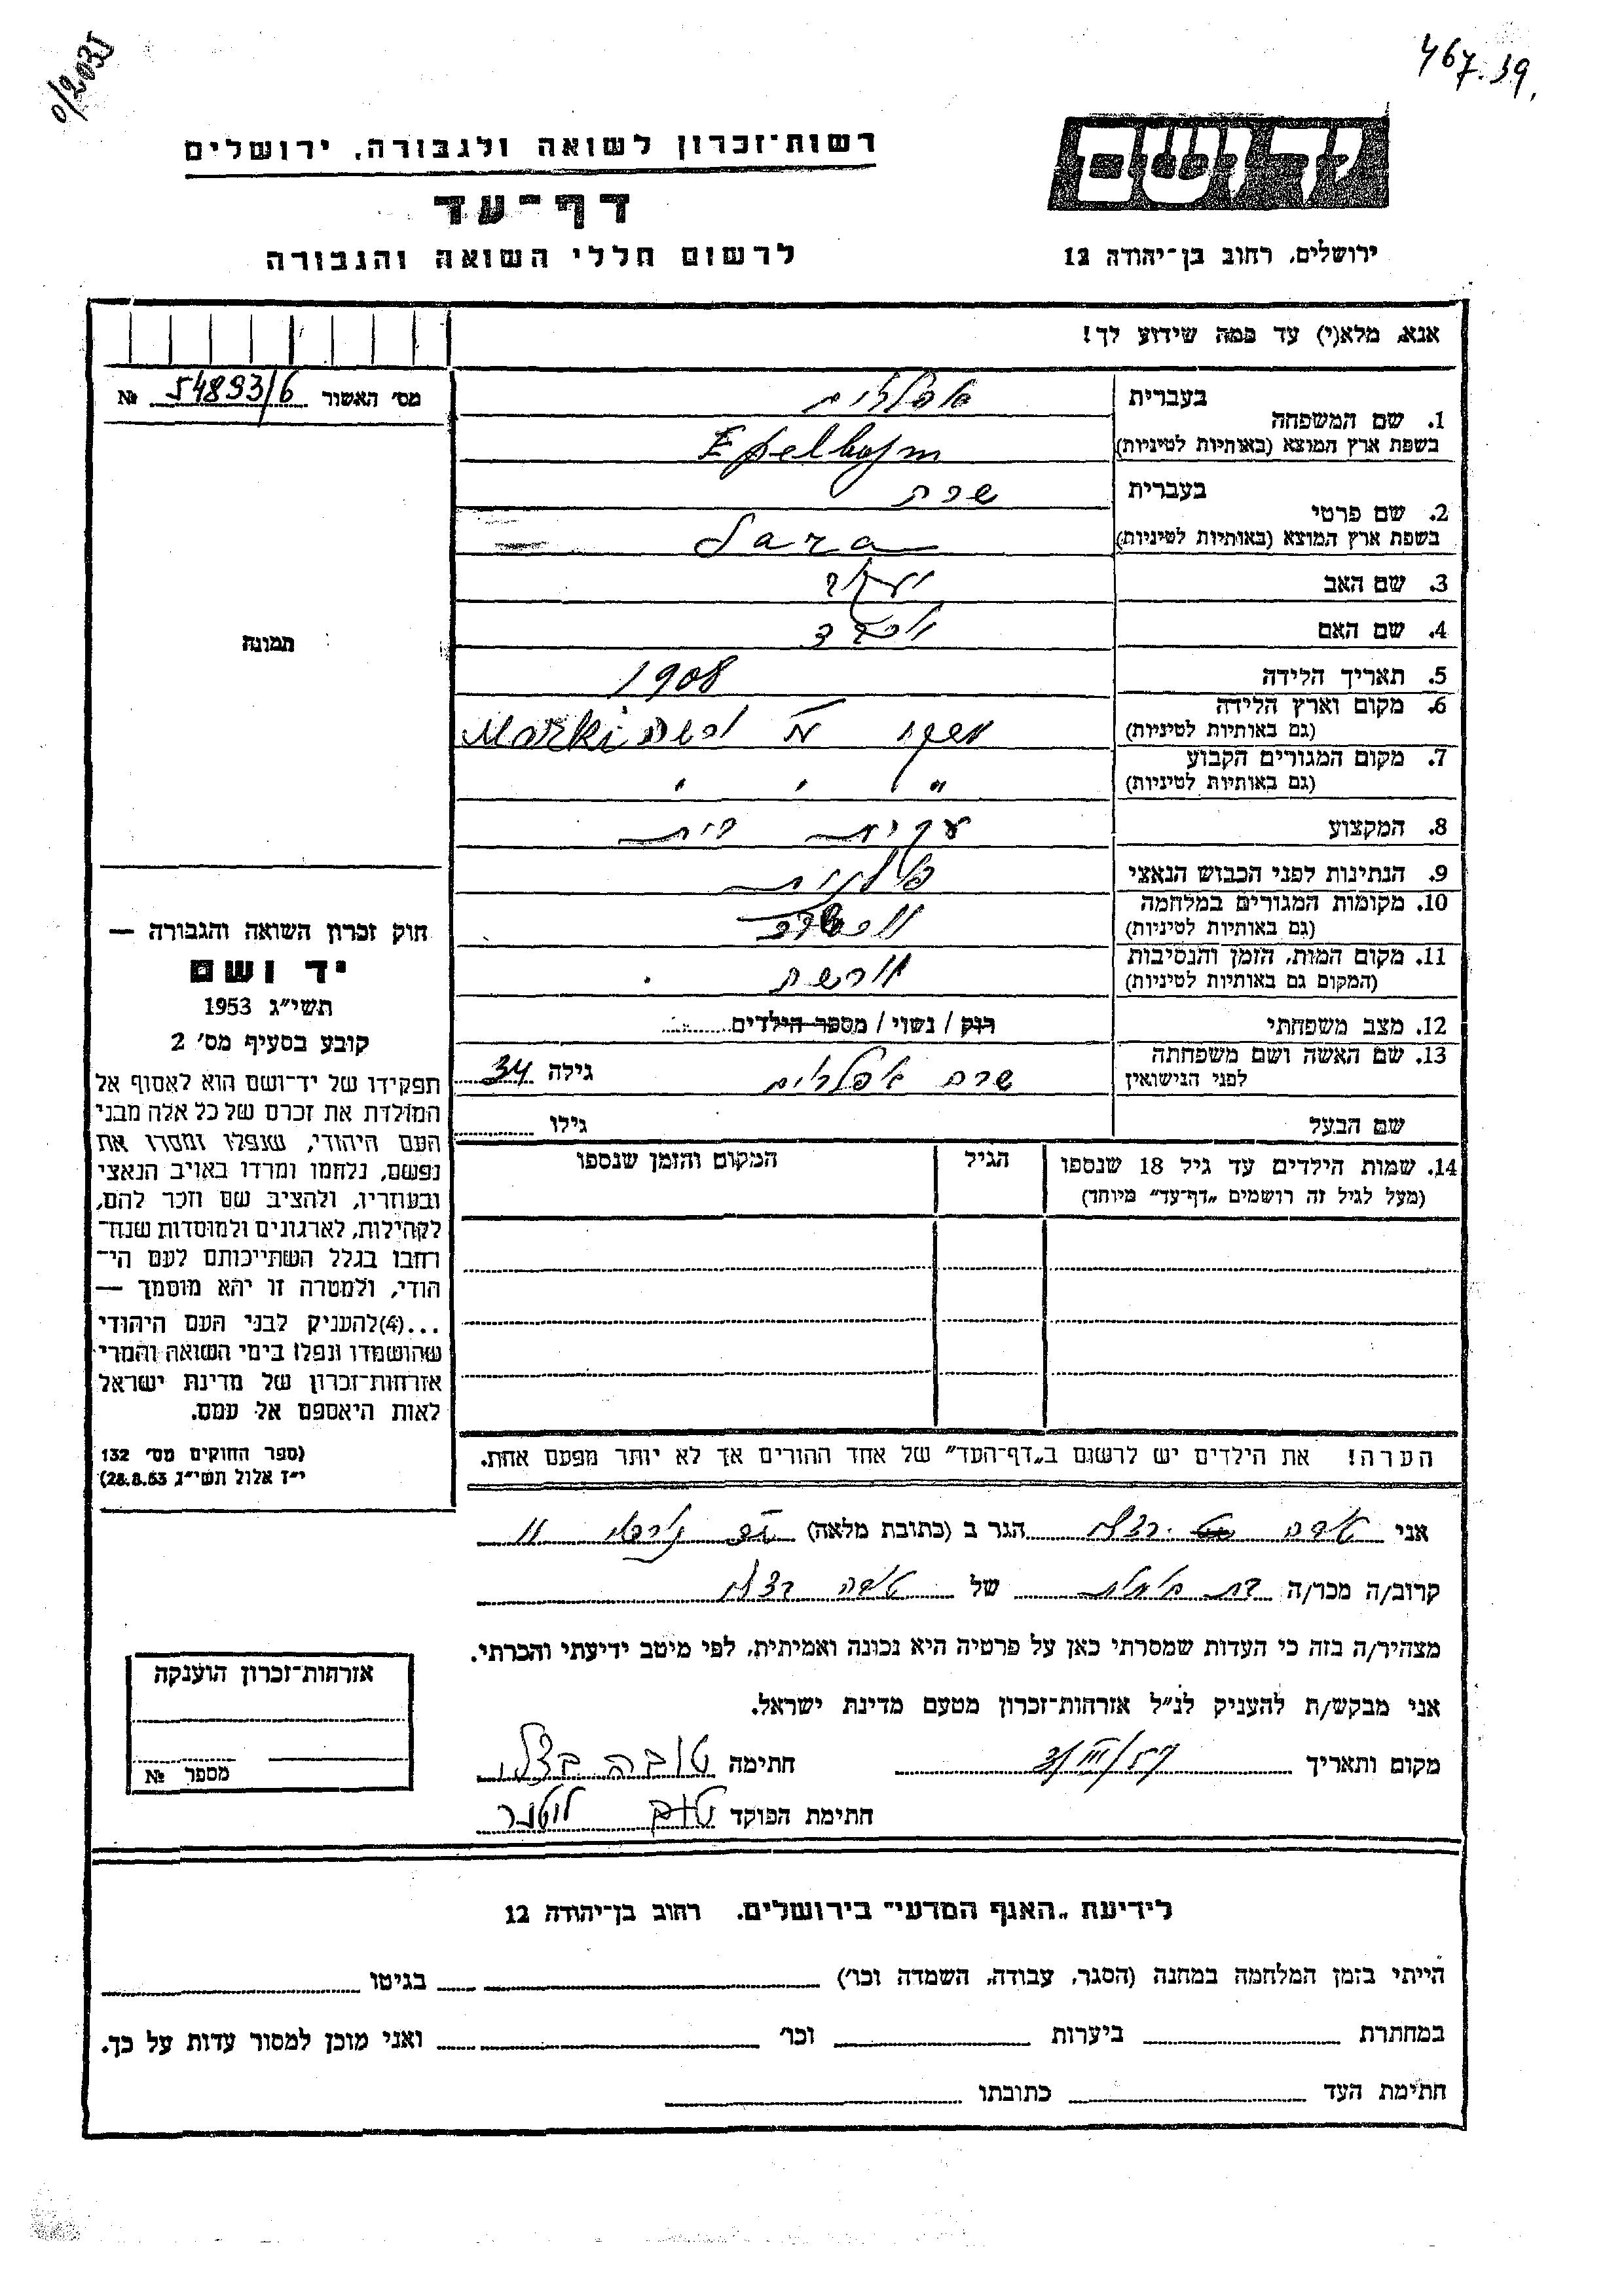 467.39
0/2031
יד ושם
ירושלים, רחוב בן־יהודה 12
רשות־זכרון לשואה ולגבורה, ירושלים
דף־עד
לרשום חללי השואה והגבורה
אנא, מלא(י) עד כמה שידוע לך!
מס׳ האשור 54893/6 №
1. שם המשפחה
בעברית
בשפת ארץ המוצא (באותיות לטיניות) Epelbojm
2. שם פרטי
בעברית שרה
בשפת ארץ המוצא (באותיות לטיניות) Sara
3. שם האב יעקב
4. שם האם
5. תאריך הלידה 1908
6. מקום וארץ הלידה
(גם באותיות לטיניות) Marki
7. מקום המגורים הקבוע
(גם באותיות לטיניות) " " "
8. המקצוע עקרת בית
9. הנתינות לפני הכבוש הנאצי פולנית
10. מקומות המגורים במלחמה
(גם באותיות לטיניות)
11. מקום המות, הזמן והנסיבות
(המקום גם באותיות לטיניות) ורשה
12. מצב משפחתי רוק / נשוי / מספר הילדים
13. שם האשה ושם משפחתה
לפני הנישואין שרה אפלבוים גילה 34
שם הבעל גילו
14. שמות הילדים עד גיל 18 שנספו
(מעל לגיל זה רושמים „דף־עד״ מיוחד)
הגיל
המקום והזמן שנספו
הערה! את הילדים יש לרשום ב„דף־העד״ של אחד ההורים אך לא יותר מפעם אחת.
תמונה
חוק זכרון השואה והגבורה —
יד ושם
תשי״ג 1953
קובע בסעיף מס׳ 2
תפקידו של יד־ושם הוא לאסוף אל
המולדת את זכרם של כל אלה מבני
העם היהודי, שנפלו ומסרו את
נפשם, נלחמו ומרדו באויב הנאצי
ובעוזריו, ולהציב שם וזכר להם,
לקהילות, לארגונים ולמוסדות שנח־
רחבו בגלל השתייכותם לעם הי־
הודי, ולמטרה זו יהא מוסמך —
...(4)להעניק לבני העם היהודי
שהושמדו ונפלו בימי השואה והמרי
אזרחות־זכרון של מדינת ישראל
לאות היאספם אל עמם.
(ספר החוקים מס׳ 132
י״ז אלול תשי״ג 28.8.53)
אני טובה בצלו הגר ב (כתובת מלאה) 11
קרוב/ה מכר/ה בת של טובה בצלו
מצהיר/ה בזה כי העדות שמסרתי כאן על פרטיה היא נכונה ואמיתית, לפי מיטב ידיעתי והכרתי.
אני מבקש/ת להעניק לנ״ל אזרחות־זכרון מטעם מדינת ישראל.
מקום ותאריך חתימה טובה בצלו
חתימת הפוקד
אזרחות־זכרון הוענקה
מספר №
לידיעת „האגף המדעי״ בירושלים. רחוב בן־יהודה 12
הייתי בזמן המלחמה במחנה (הסגר, עבודה, השמדה וכו׳) בגיטו
במחתרת ביערות וכו׳ ואני מוכן למסור עדות על כך.
חתימת העד כתובתו